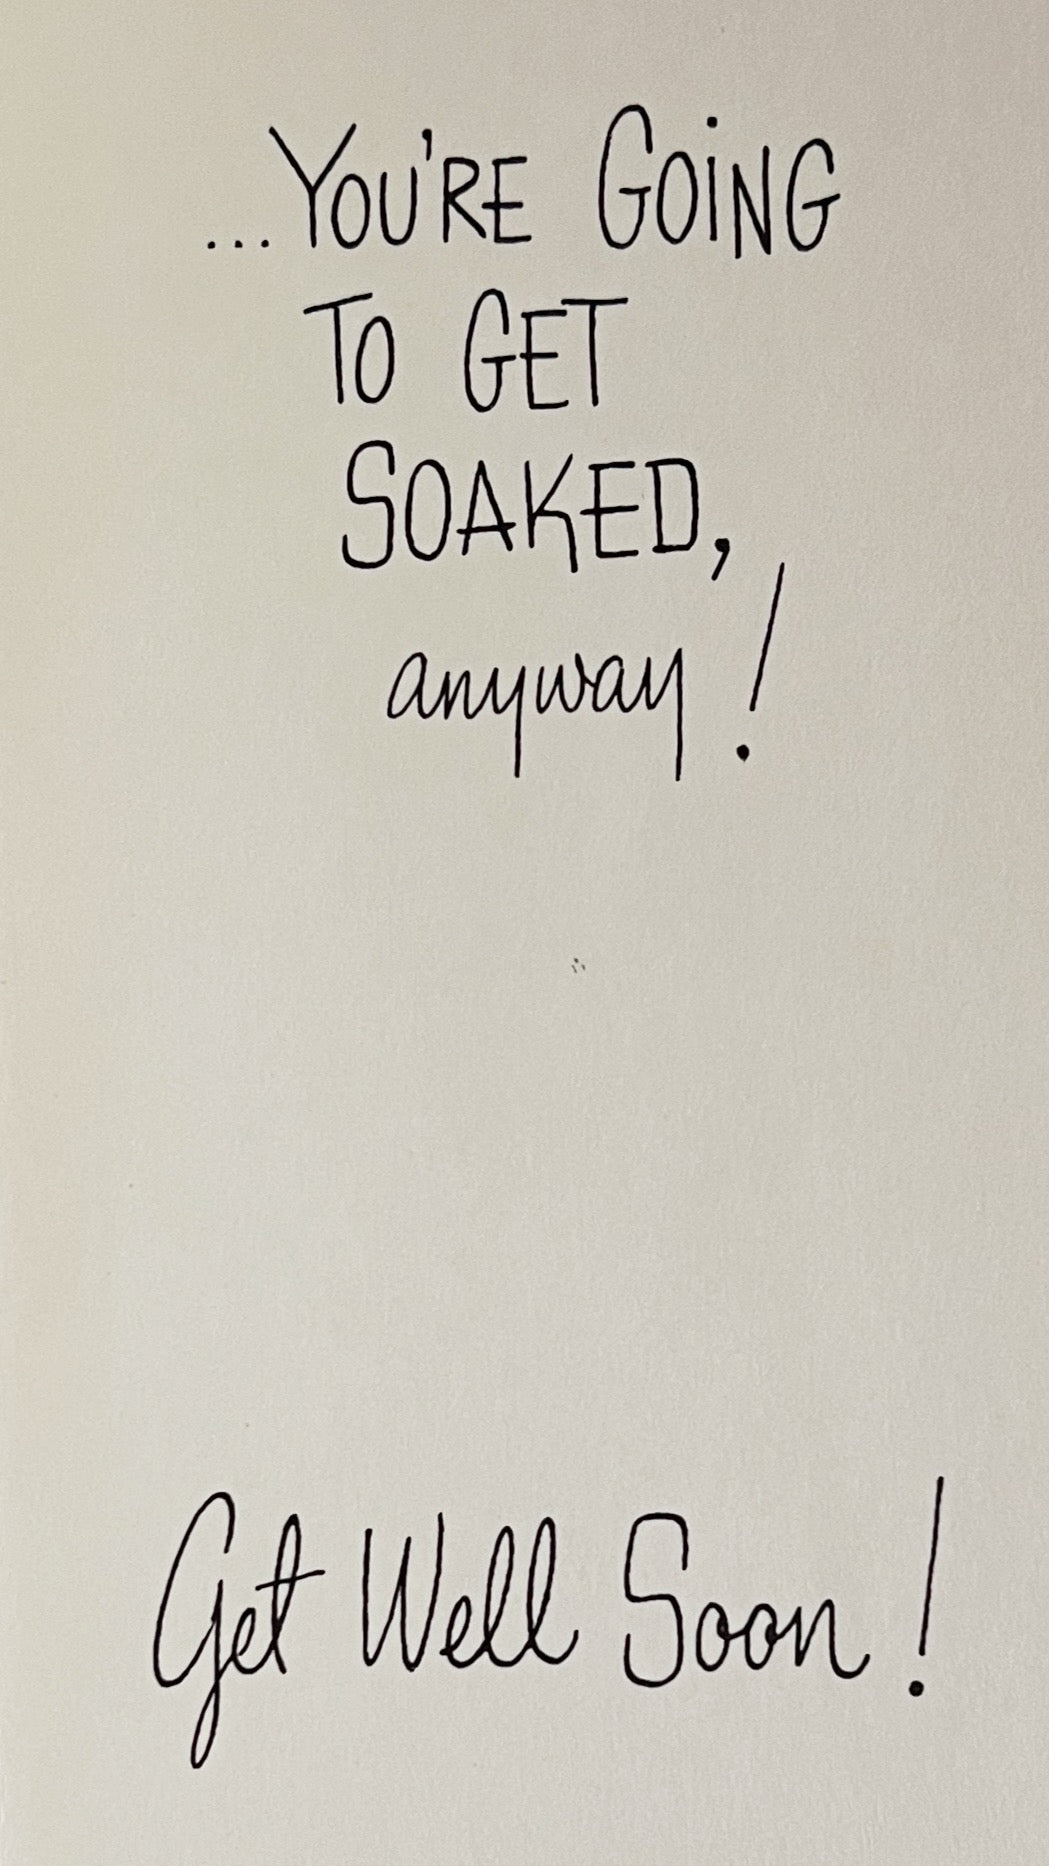 ...YOU'RE GOiNG
TO GET
SOAKED,
anyway!
Get Well Soon!